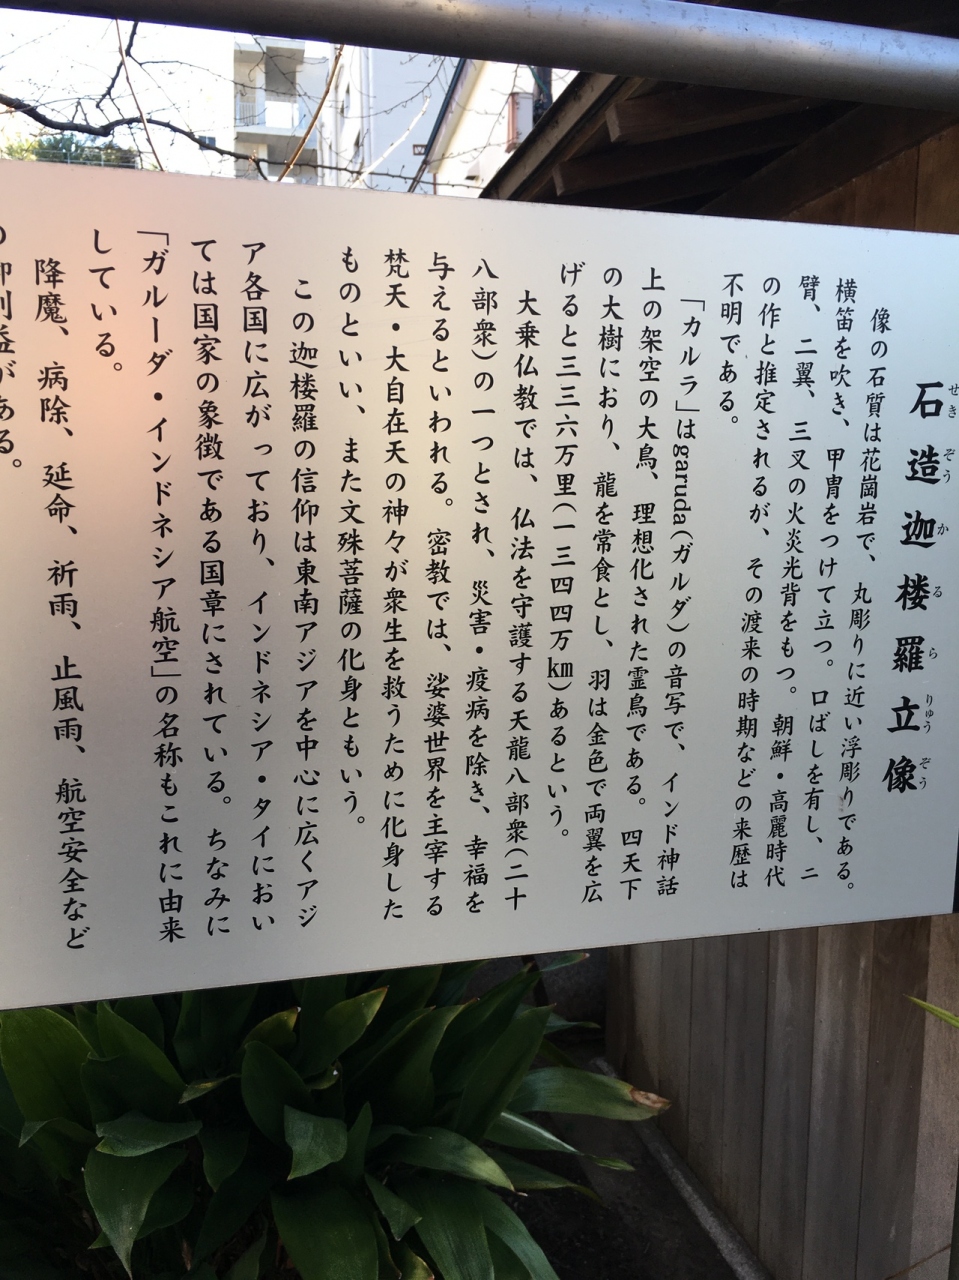 石造迦楼羅立像
せきぞうかるらりゅうぞう
像の石質は花崗岩で、丸彫りに近い浮彫りである。
横笛を吹き、甲冑をつけて立つ。口ばしを有し、二
臂、二翼、三叉の火炎光背をもつ。朝鮮・高麗時代
の作と推定されるが、その渡来の時期などの来歴は
不明である。
「カルラ」はgaruda(ガルダ)の音写で、インド神話
上の架空の大鳥、理想化された霊鳥である。四天下
の大樹におり、龍を常食とし、羽は金色で両翼を広
げると三三六万里(一三四四万km)あるという。
大乗仏教では、仏法を守護する天龍八部衆(二十
八部衆)の一つとされ、災害・疫病を除き、幸福を
与えるといわれる。密教では、娑婆世界を主宰する
梵天・大自在天の神々が衆生を救うために化身した
ものといい、また文殊菩薩の化身ともいう。
この迦楼羅の信仰は東南アジアを中心に広くアジ
ア各国に広がっており、インドネシア・タイにおい
ては国家の象徴である国章にされている。ちなみに
「ガルーダ・インドネシア航空」の名称もこれに由来
している。
降魔、病除、延命、祈雨、止風雨、航空安全など
の御利益がある。